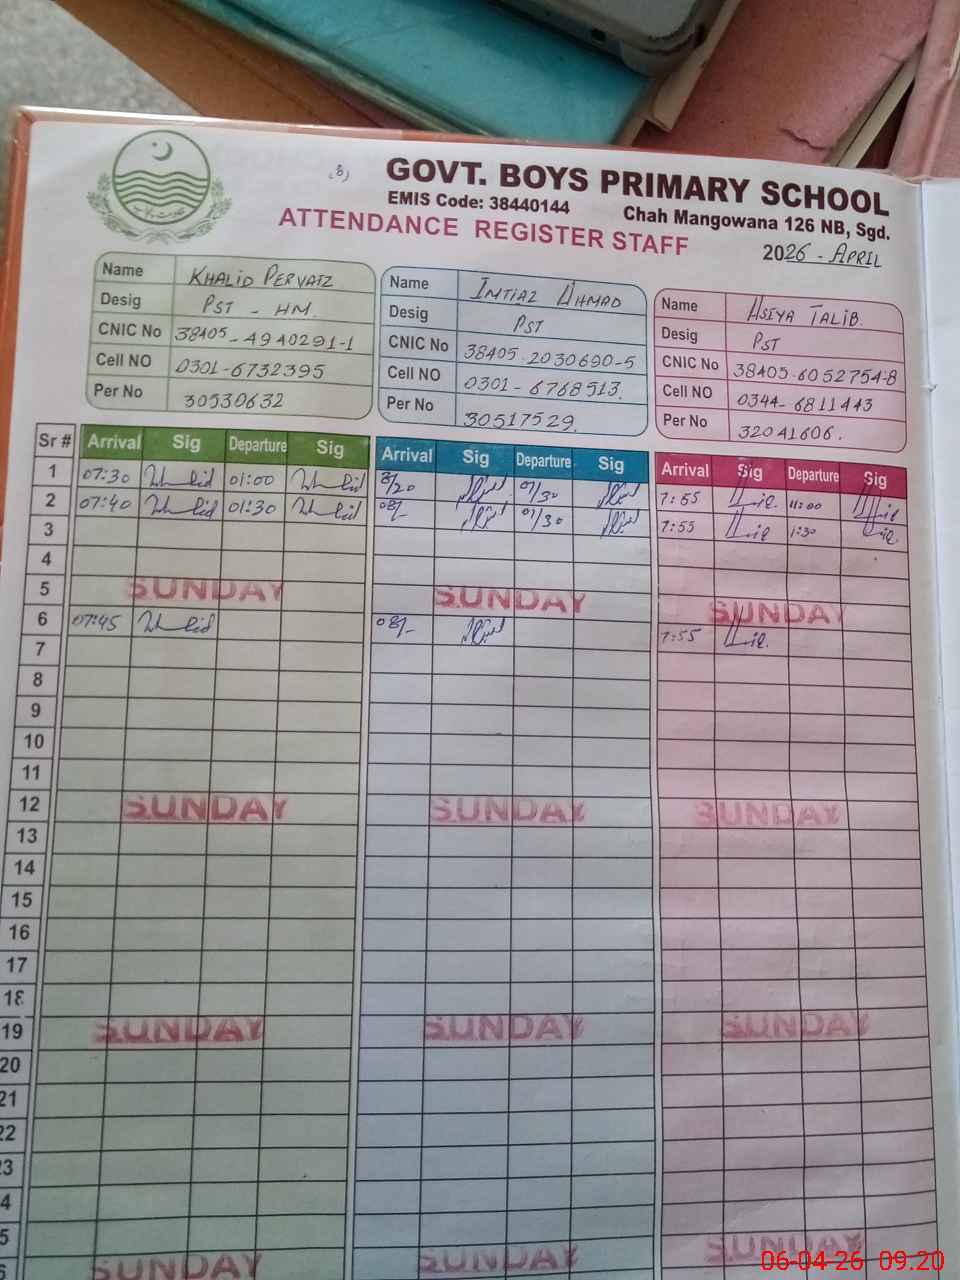 (8)
GOVT. BOYS PRIMARY SCHOOL
EMIS Code: 38440144 Chah Mangowana 126 NB, Sgd.
ATTENDANCE REGISTER STAFF
2026 - APRIL
Name KHALID PERVAIZ
Desig PST - HM.
CNIC No 38405-4940291-1
Cell NO 0301-6732395
Per No 30530632
Name IMTIAZ AHMAD
Desig PST
CNIC No 38405-2030690-5
Cell NO 0301-6768513.
Per No 30517529.
Name ASIYA TALIB.
Desig PST
CNIC No 38405-6052754-8
Cell NO 0344-6811443
Per No 32041606.
Sr # Arrival Sig Departure Sig Arrival Sig Departure Sig Arrival Sig Departure Sig
1 07:30 01:00 8/20 01/30 7:55 11:00
2 07:40 01:30 08/- 01/30 7:55 1:30
3
4
5 SUNDAY SUNDAY SUNDAY
6 07:45 08/- 7:55
7
8
9
10
11
12 SUNDAY SUNDAY SUNDAY
13
14
15
16
17
18
19 SUNDAY SUNDAY SUNDAY
20
21
22
23
4
5
6 SUNDAY SUNDAY SUNDAY
06-04-26 09:20